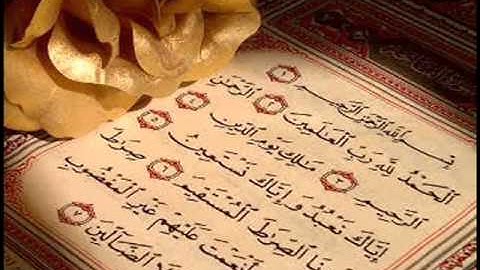 بِسْمِ اللَّهِ الرَّحْمَٰنِ الرَّحِيمِ ١
الْحَمْدُ لِلَّهِ رَبِّ الْعَالَمِينَ ٢ الرَّحْمَٰنِ
الرَّحِيمِ ٣ مَالِكِ يَوْمِ الدِّينِ ٤
إِيَّاكَ نَعْبُدُ وَإِيَّاكَ نَسْتَعِينُ ٥
نَا الصِّرَاطَ الْمُسْتَقِيمَ ٦ صِرَاطَ
أَنْعَمْتَ عَلَيْهِمْ غَيْرِ الْمَغْضُوبِ
الضَّالِّينَ ٧